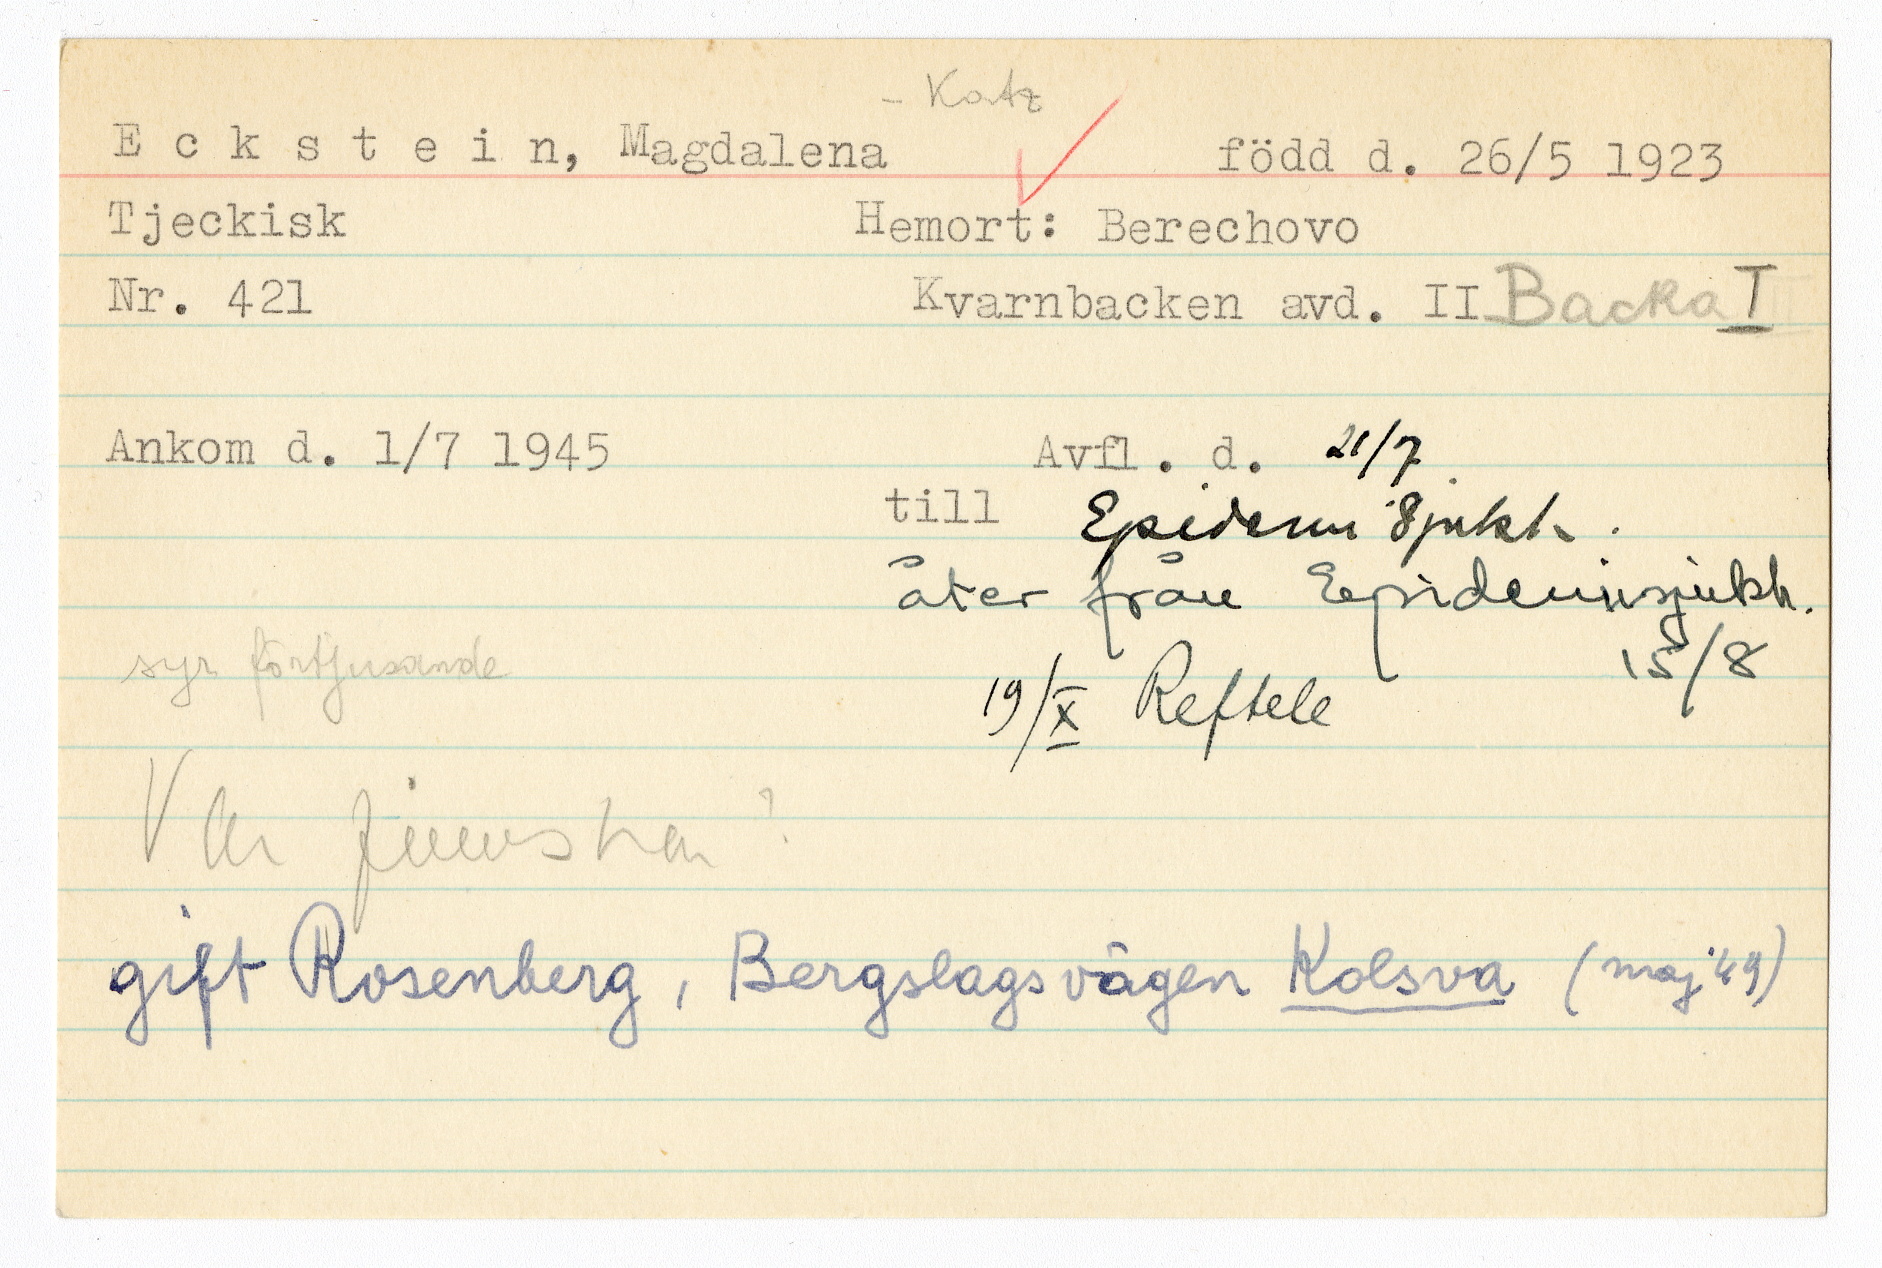 - Katz
Eckstein, Magdalena född d. 26/5 1923
Tjeckisk Hemort: Berechovo
Nr. 421 Kvarnbacken avd. II Backa I
Ankom d. 1/7 1945 Avfl. d. 21/7
till Epidemi Sjukh.
åter från Epidemisjukh.
15/8
syr förtjusande
19/X Reftele
Var
gift Rosenberg, Bergslagsvägen Kolsva (maj '49)